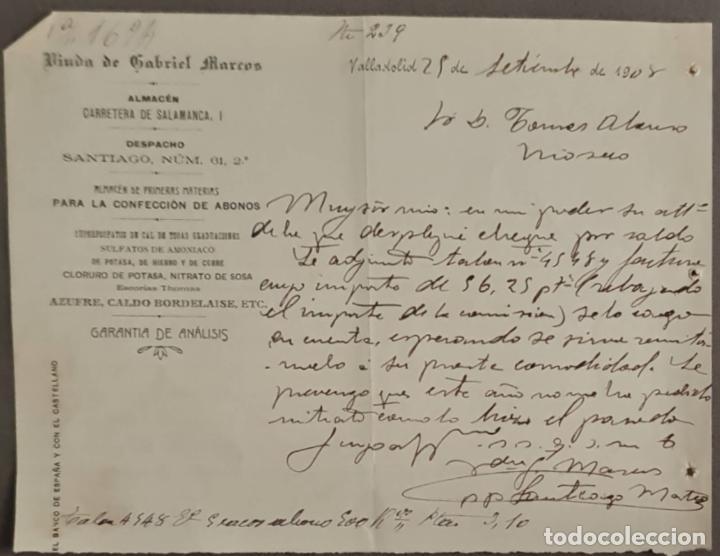 Nº 239
Viuda de Gabriel Marcos
ALMACÉN
CARRETERA DE SALAMANCA, 1
DESPACHO
SANTIAGO, NÚM. 61, 2.º
ALMACÉN DE PRIMERAS MATERIAS
PARA LA CONFECCIÓN DE ABONOS
SUPERFOSFATOS DE CAL DE TODAS GRADUACIONES
SULFATOS DE AMONIACO
DE POTASA, DE HIERRO Y DE COBRE
CLORURO DE POTASA, NITRATO DE SOSA
Escorias Thomas
AZUFRE, CALDO BORDELAISE, ETC.
GARANTIA DE ANÁLISIS
EL BANCO DE ESPAÑA Y CON EL CASTELLANO
Valladolid 25 de Setiembre de 1908
D. Tomas Alonso
Rioseco
Muy Sór mio: en mi poder su att.ª
de la que desplegué cheque por saldo
Le adjunto talon nº 4548 y factura
cuyo importe de 56,25 ptª (rebajado
el importe de la comision) se lo cargo
en cuenta, esperando se sirva remitir
melo á su puesta comodidad. Le
prevengo que este año no me ha pedido
nitrato como lo hizo el pasado
s. s. q. s. m. b
Marcos
pp Santiago
Talon 4548 sacos abono 500 Kºs 3,10